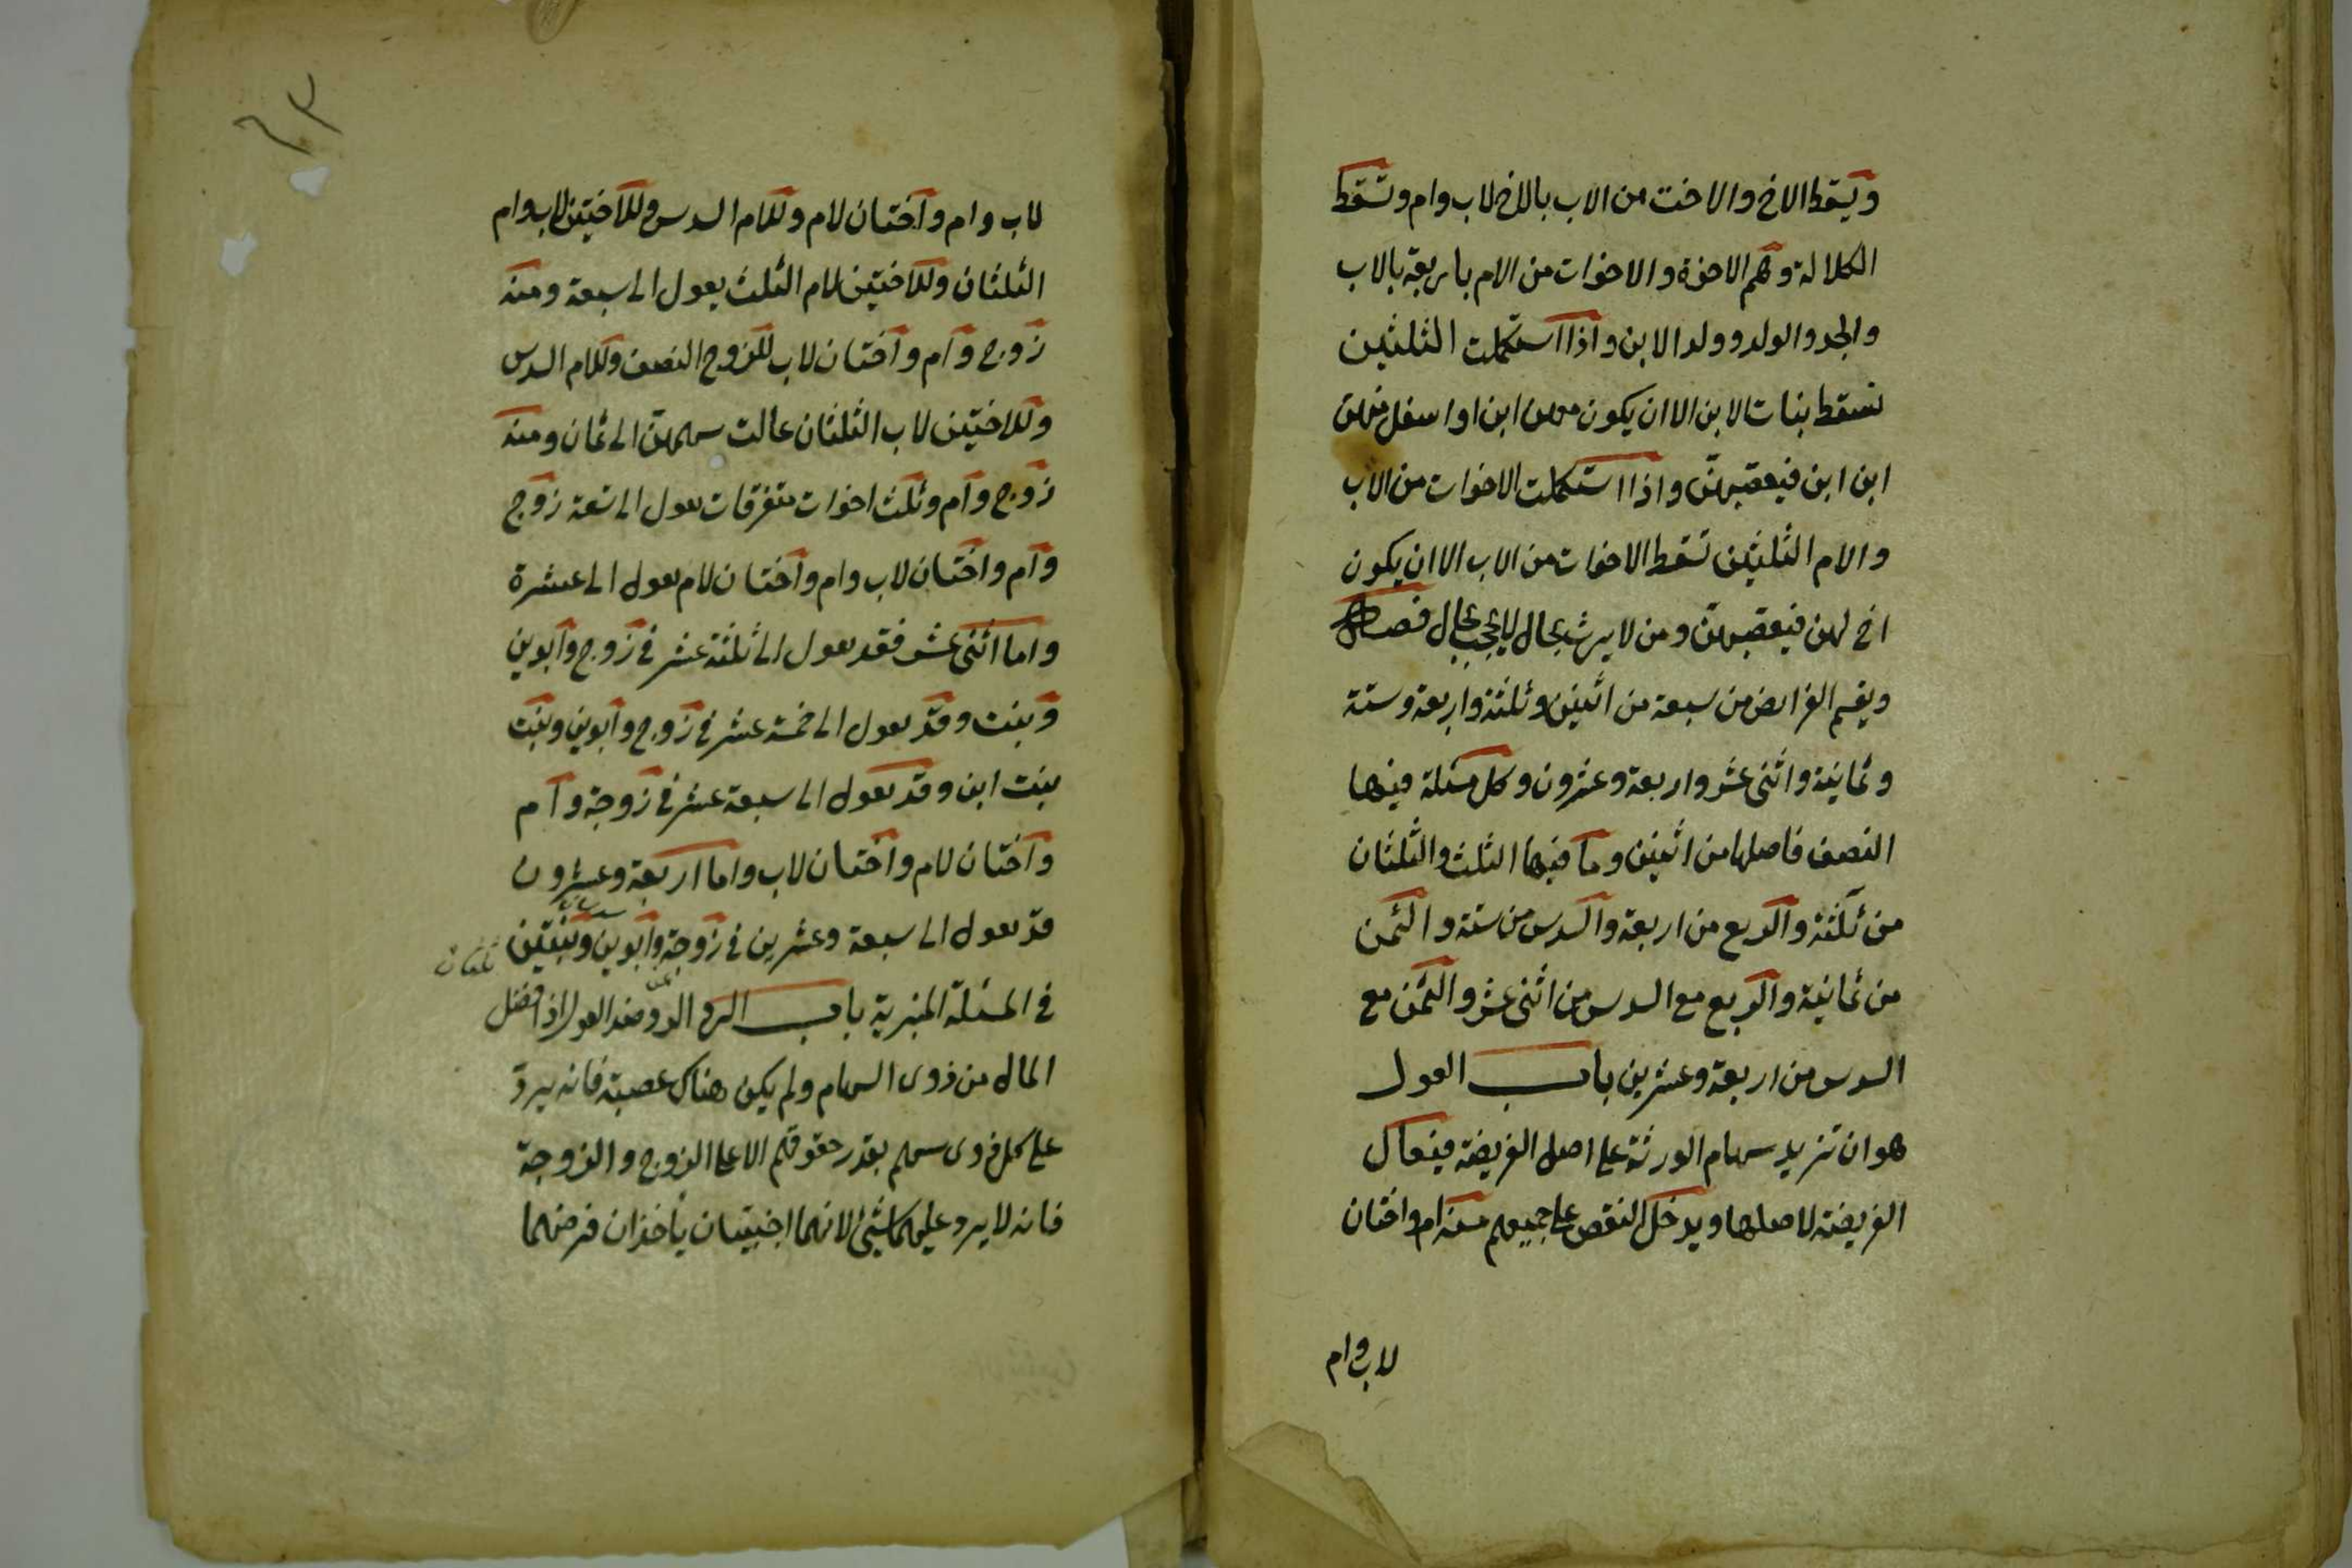 ويسقط الاخ والاخت من الاب بالاخ لاب وام وتسقط
الكلالة وهم الاخوة والاخوات من الام باربعة بالاب
والجد والولد وولد الابن واذا استكملت الثلثين
تسقط بنات الابن الا ان يكون معهن ابن او اسفل منهن
ابن ابن فيعصبهن واذا استكملت الاخوات من الاب
والام الثلثين تسقط الاخوات من الاب الا ان يكون
اخ لهن فيعصبهن ومن لا يرث بحال لا يحجب بحال فصل
ويقسم الفرايض من سبعة من اثنين وثلثة واربعة وستة
وثمانية واثنى عشر واربعة وعشرون وكل مسئلة فيها
النصف فاصلها من اثنين وما فيها الثلث والثلثان
من ثلثة والربع من اربعة والسدس من ستة والثمن
من ثمانية والربع مع السدس من اثنى عشر والثمن مع
السدس من اربعة وعشرين باب العول
هو ان تزيد سهام الورثة على اصل الفريضة فيعال
الفريضة لاصلها ويدخل النقص على جميعهم منه ام واختان
لاب وام
٦٣
لاب وام واختان لام وللام السدس وللاختين لاب وام
الثلثان وللاختين لام الثلث يعول الى سبعة ومنه
زوج وام واختان لاب للزوج النصف وللام السدس
وللاختين لاب الثلثان عالت سهمهن الى ثمان ومنه
زوج وام وثلث اخوات متفرقات يعول الى تسعة زوج
وام واختان لاب وام واختان لام يعول الى عشرة
واما اثنى عشر فقد يعول الى ثلثة عشر في زوج وابوين
وبنت وقد يعول الى خمسة عشر في زوج وابوين وبنت
بنت ابن وقد يعول الى سبعة عشر في زوجة وام
واختان لام واختان لاب واما اربعة وعشرون
قد يعول الى سبعة وعشرين في زوجة وابوين وبنتين
ثلثان
في المسئلة المنبرية باب الرد الرد ضد العول اذا فضل
المال من ذوى السهام ولم يكن هناك عصبة فانه يرد
على كل ذوى سهم بقدر حقوقهم الا على الزوج والزوجة
فانه لا يرد عليهما شيئ لانهما اجنبيان يأخذان فرضهما